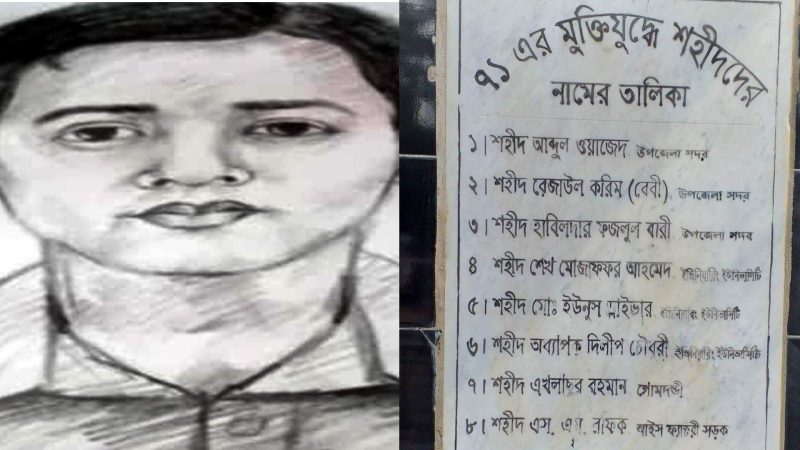 ৭১ এর মুক্তিযুদ্ধে শহীদদের
নামের তালিকা
১। শহীদ আব্দুল ওয়াজেদ উপজেলা সদর
২। শহীদ রেজাউল করিম (বেবী) উপজেলা সদর
৩। শহীদ হাবিলদার ফজলুল বারী উপজেলা সদর
৪ শহীদ শেখ মোজাফফর আহমেদ
৫। শহীদ মোঃ ইউনুস
৬। শহীদ অধ্যাপক দিলীপ চৌধুরী
৭। শহীদ এখলাছুর রহমান গোমদন্ডী
৮। শহীদ এস. এম. রফিক সড়ক